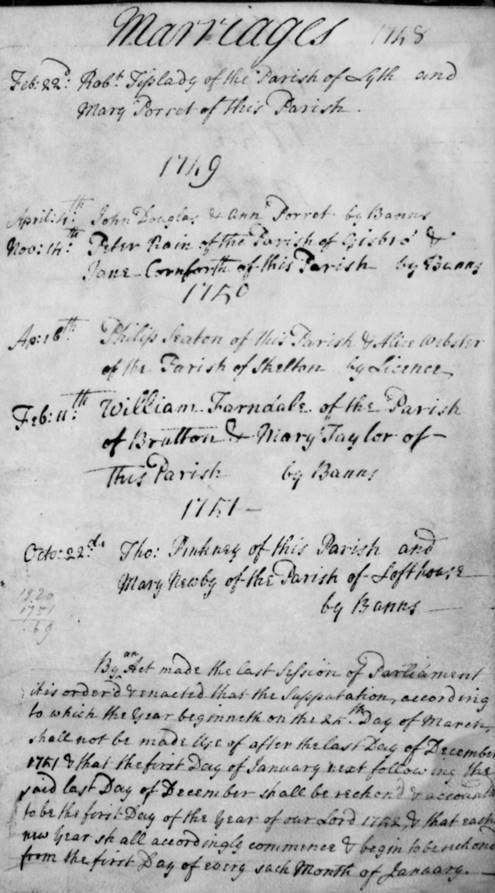 Marriages 1748
Feb: 22d: Robt Tiplady of the Parish of Lyth and
Mary Porret of this Parish.
1749
April: 4th John Douglas & Ann Porret by Banns
Nov: 14th: Peter Rain of the Parish of Gisbro' &
Jane Cornforth of this Parish by Banns
1750
Ap: 16th Philip Seaton of this Parish & Alice Webster
of the Parish of Skelton by Licence
Feb: 11th: William Farndale of the Parish
of Brotton & Mary Taylor of
this Parish by Banns
1751
Octo: 22d. Tho: Pinkney of this Parish and
Mary Newby of the Parish of Lofthouse
by Banns
1820
1751
69
By an Act made the last Session of Parliament
it is order'd & enacted that the Supputation, according
to which the Year beginneth on the 25th Day of March,
shall not be made Use of after the last Day of December
1751 & that the first Day of January next following the
said last Day of December shall be reckon'd & accounted
to be the first Day of the Year of our Lord 1752, & that each
new Year shall accordingly commence & begin to be reckon'd
from the first Day of every such Month of January.